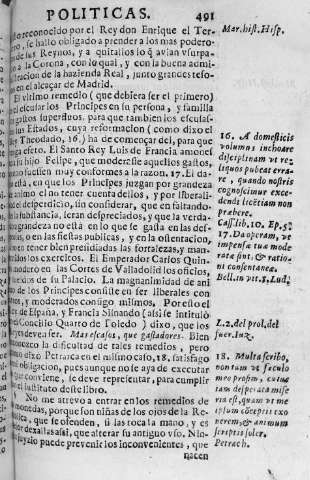 POLITICAS. 491
reconocido por el Rey don Enrique el Ter-
se hallo obligado a prender a los mas podero-
de sus Reynos, y quitallos lo q̃ avian vsurpa-
a la Corona, con lo qual, y con la buena admi-
racion de la hazienda Real, junto grandes teso-
en el alcaçar de Madrid.
El vltimo remedio (que debiera ser el primero)
el escusar los Principes en su persona, y familia
gastos superfluos, para que tambien los escusas-
sus Estados, cuya reformacion (como dixo el
Rey Theodato, 16.) ha de começar del, para que
efeto. El Santo Rey Luis de Francia amonel
su hijo Felipe, que moderasse aquellos gastos,
fuessen muy conformes a la razon. 17. El da-
está, en que los Principes juzgan por grandeza
animo el no tener cuenta dellos, y por liberali-
del desperdicio, sin considerar, que en faltando-
la substancia, seran despreciados, y que la verda-
grandeza no está en lo que se gasta en las
o en las fiestas publicas, y en la ostentacion,
en tener bien presidiadas las fortalezas, y man-
los exercitos. El Emperador Carlos Quin-
moderó en las Cortes de Valladolid los oficios,
de su Palacio. La magnanimidad de ani-
de los Principes consiste en ser liberales con
y moderados consigo mismos. Por esto el
de España, y Francia Sisnando (assi se intituló
Concilio Quarto de Toledo) dixo, que los
deven ser. Mas escasos, que gastadores. Bien
la dificultad de tales remedios, pero
dixo Petrarca en el mismo caso, 18. satisfago
obligacion, pues aunque no se aya de executar
conviene, se deve representar, para cumplir
instituto deste libro.
No me atrevo a entrar en los remedios de
monedas, porque son niñas de los ojos de la Re-
que se ofenden, si las toca la mano, y es
dexallas assi, que alterar su antiguo vso. Nin-
juyzio puede prevenir los inconvenientes, que
nacen
Mar. hist. Hisp.
16. A domesticis
volumus inchoare
disciplinam vt re-
liquos pudeat erra-
re, quando nostris
cognoscimur exce-
dendi licentiam non
præbere.
Cass. lib. 10. Ep. 5.
17. Da operam, vt
impensæ tuæ mode-
ratæ sint, & ratio-
ni consentaneæ.
Bell. in vit. S. Lud.
L. 2. del prol. del
fuer. Iuz.
18. Multa scribo,
non tam vt sæculo
meo prosim, cuius
iam desperata mise-
ria est, quam vt me
ipsum
& animum
scriptis soler.
Petrach.